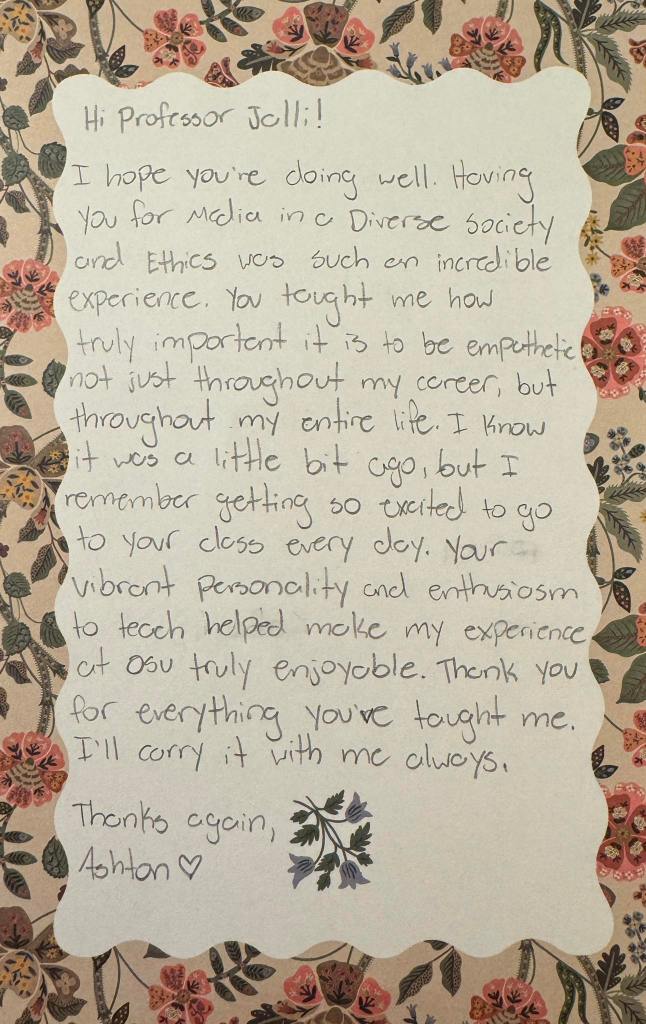 Hi Professor Jolli!
I hope you're doing well. Having
you for Media in a Diverse Society
and Ethics was such an incredible
experience. You taught me how
truly important it is to be empathetic
not just throughout my career, but
throughout my entire life. I know
it was a little bit ago, but I
remember getting so excited to go
to your class every day. Your
vibrant personality and enthusiasm
to teach helped make my experience
at OSU truly enjoyable. Thank you
for everything you've taught me.
I'll carry it with me always.
Thanks again,
Ashton ♡